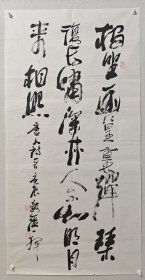 獨坐幽篁裏彈琴
復長嘯深林人不知明月
來相照 唐人詩